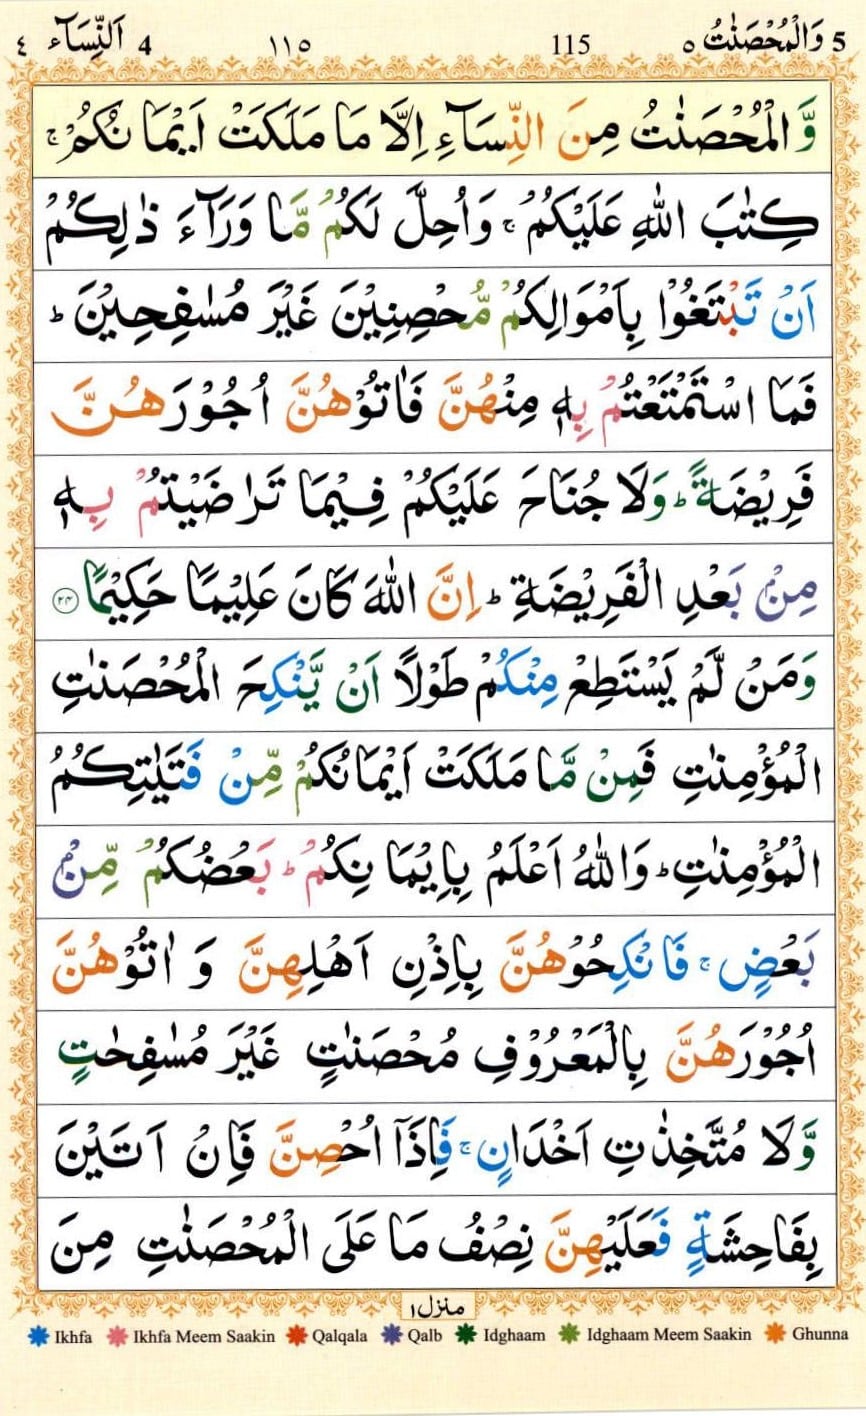 5 وَالْمُحْصَنٰتُ ٥ 115 ١١٥ 4 اَلنِّسَآء ٤
وَّ الْمُحْصَنٰتُ مِنَ النِّسَآءِ اِلَّا مَا مَلَكَتْ اَيْمَا نُكُمْ ۚ
كِتٰبَ اللّٰهِ عَلَيْكُمْ ۚ وَاُحِلَّ لَكُمْ مَّا وَرَآءَ ذٰلِكُمْ
اَنْ تَبْتَغُوْا بِاَمْوَالِكُمْ مُّحْصِنِيْنَ غَيْرَ مُسٰفِحِيْنَ ؕ
فَمَا اسْتَمْتَعْتُمْ بِهٖ مِنْهُنَّ فَاٰتُوْهُنَّ اُجُوْرَهُنَّ
فَرِيْضَةً ؕ وَلَا جُنَاحَ عَلَيْكُمْ فِيْمَا تَرٰضَيْتُمْ بِهٖ
مِنْۢ بَعْدِ الْفَرِيْضَةِ ؕ اِنَّ اللّٰهَ كَانَ عَلِيْمًا حَكِيْمًا ۲۴
وَمَنْ لَّمْ يَسْتَطِعْ مِنْكُمْ طَوْلًا اَنْ يَّنْكِحَ الْمُحْصَنٰتِ
الْمُؤْمِنٰتِ فَمِنْ مَّا مَلَكَتْ اَيْمَانُكُمْ مِّنْ فَتَيٰتِكُمُ
الْمُؤْمِنٰتِ ؕ وَاللّٰهُ اَعْلَمُ بِاِيْمَا نِكُمْ ؕ بَعْضُكُمْ مِّنْۢ
بَعْضٍ ۚ فَا نْكِحُوْهُنَّ بِاِذْنِ اَهْلِهِنَّ وَ اٰتُوْهُنَّ
اُجُوْرَهُنَّ بِالْمَعْرُوْفِ مُحْصَنٰتٍ غَيْرَ مُسٰفِحٰتٍ
وَّلَا مُتَّخِذٰتِ اَخْدَانٍ ۚ فَاِذَاۤ اُحْصِنَّ فَاِنْ اَتَيْنَ
بِفَاحِشَةٍ فَعَلَيْهِنَّ نِصْفُ مَا عَلَى الْمُحْصَنٰتِ مِنَ
منزل ١
Ikhfa Ikhfa Meem Saakin Qalqala Qalb Idghaam Idghaam Meem Saakin Ghunna